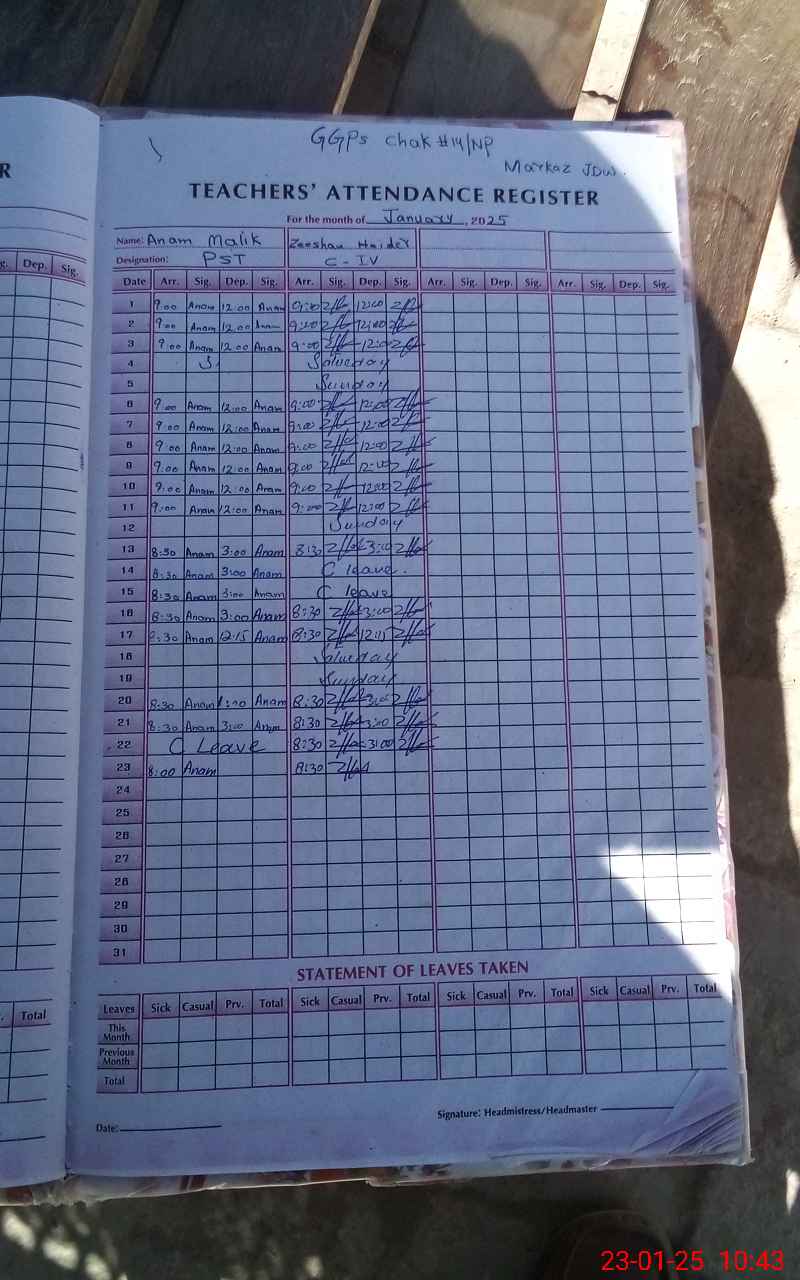 GGPS chak #14/NP
Markaz JDW.
R
TEACHERS' ATTENDANCE REGISTER
For the month of January, 2025
Name: Anam Malik Zeeshan Haider
Designation: PST C-IV
g. Dep. Sig.
Date Arr. Sig. Dep. Sig. Arr. Sig. Dep. Sig. Arr. Sig. Dep. Sig. Arr. Sig. Dep. Sig.
1 9:00 Anam 12:00 Anam 9:00 12:00
2 9:00 Anam 12:00 Anam 9:00 12:00
3 9:00 Anam 12:00 Anam 9:00 12:00
4 S Saturday
5 Sunday
6 9:00 Anam 12:00 Anam 9:00 12:00
7 9:00 Anam 12:00 Anam 9:00 12:00
8 9:00 Anam 12:00 Anam 9:00 12:00
9 9:00 Anam 12:00 Anam 9:00 12:00
10 9:00 Anam 12:00 Anam 9:00 12:00
11 9:00 Anam 12:00 Anam 9:00 12:00
12 Sunday
13 8:30 Anam 3:00 Anam 8:30 3:00
14 8:30 Anam 3:00 Anam C leave.
15 8:30 Anam 3:00 Anam C leave
16 8:30 Anam 3:00 Anam 8:30 3:00
17 8:30 Anam 12:15 Anam 8:30 12:15
18 Saturday
19 Sunday
20 8:30 Anam Anam 8:30 3:00
21 8:30 Anam 3:00 Anam 8:30 3:00
22 C Leave 8:30 3:00
23 8:00 Anam 8:30
24
25
26
27
28
29
30
31
STATEMENT OF LEAVES TAKEN
. Total
Leaves Sick Casual Prv. Total Sick Casual Prv. Total Sick Casual Prv. Total Sick Casual Prv. Total
This Month
Previous Month
Total
Signature: Headmistress/Headmaster
Date:
23-01-25 10:43